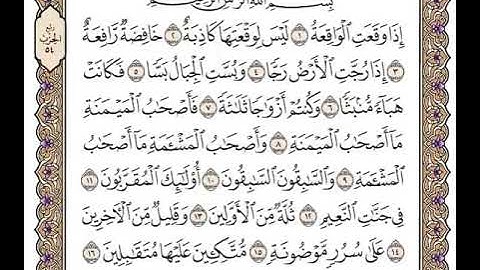 بِسْمِ اللَّهِ الرَّحْمَٰنِ الرَّحِيمِ
ربع الحزب ٥٤
إِذَا وَقَعَتِ ٱلْوَاقِعَةُ ١ لَيْسَ لِوَقْعَتِهَا كَاذِبَةٌ ٢ خَافِضَةٌ رَّافِعَةٌ
٣ إِذَا رُجَّتِ ٱلْأَرْضُ رَجًّا ٤ وَبُسَّتِ ٱلْجِبَالُ بَسًّا ٥ فَكَانَتْ
هَبَآءً مُّنۢبَثًّا ٦ وَكُنتُمْ أَزْوَٰجًا ثَلَٰثَةً ٧ فَأَصْحَٰبُ ٱلْمَيْمَنَةِ
مَآ أَصْحَٰبُ ٱلْمَيْمَنَةِ ٨ وَأَصْحَٰبُ ٱلْمَشْـَٔمَةِ مَآ أَصْحَٰبُ
ٱلْمَشْـَٔمَةِ ٩ وَٱلسَّٰبِقُونَ ٱلسَّٰبِقُونَ ١٠ أُو۟لَٰٓئِكَ ٱلْمُقَرَّبُونَ ١١
فِى جَنَّٰتِ ٱلنَّعِيمِ ١٢ ثُلَّةٌ مِّنَ ٱلْأَوَّلِينَ ١٣ وَقَلِيلٌ مِّنَ ٱلْءَاخِرِينَ
١٤ عَلَىٰ سُرُرٍ مَّوْضُونَةٍ ١٥ مُّتَّكِـِٔينَ عَلَيْهَا مُتَقَٰبِلِينَ ١٦